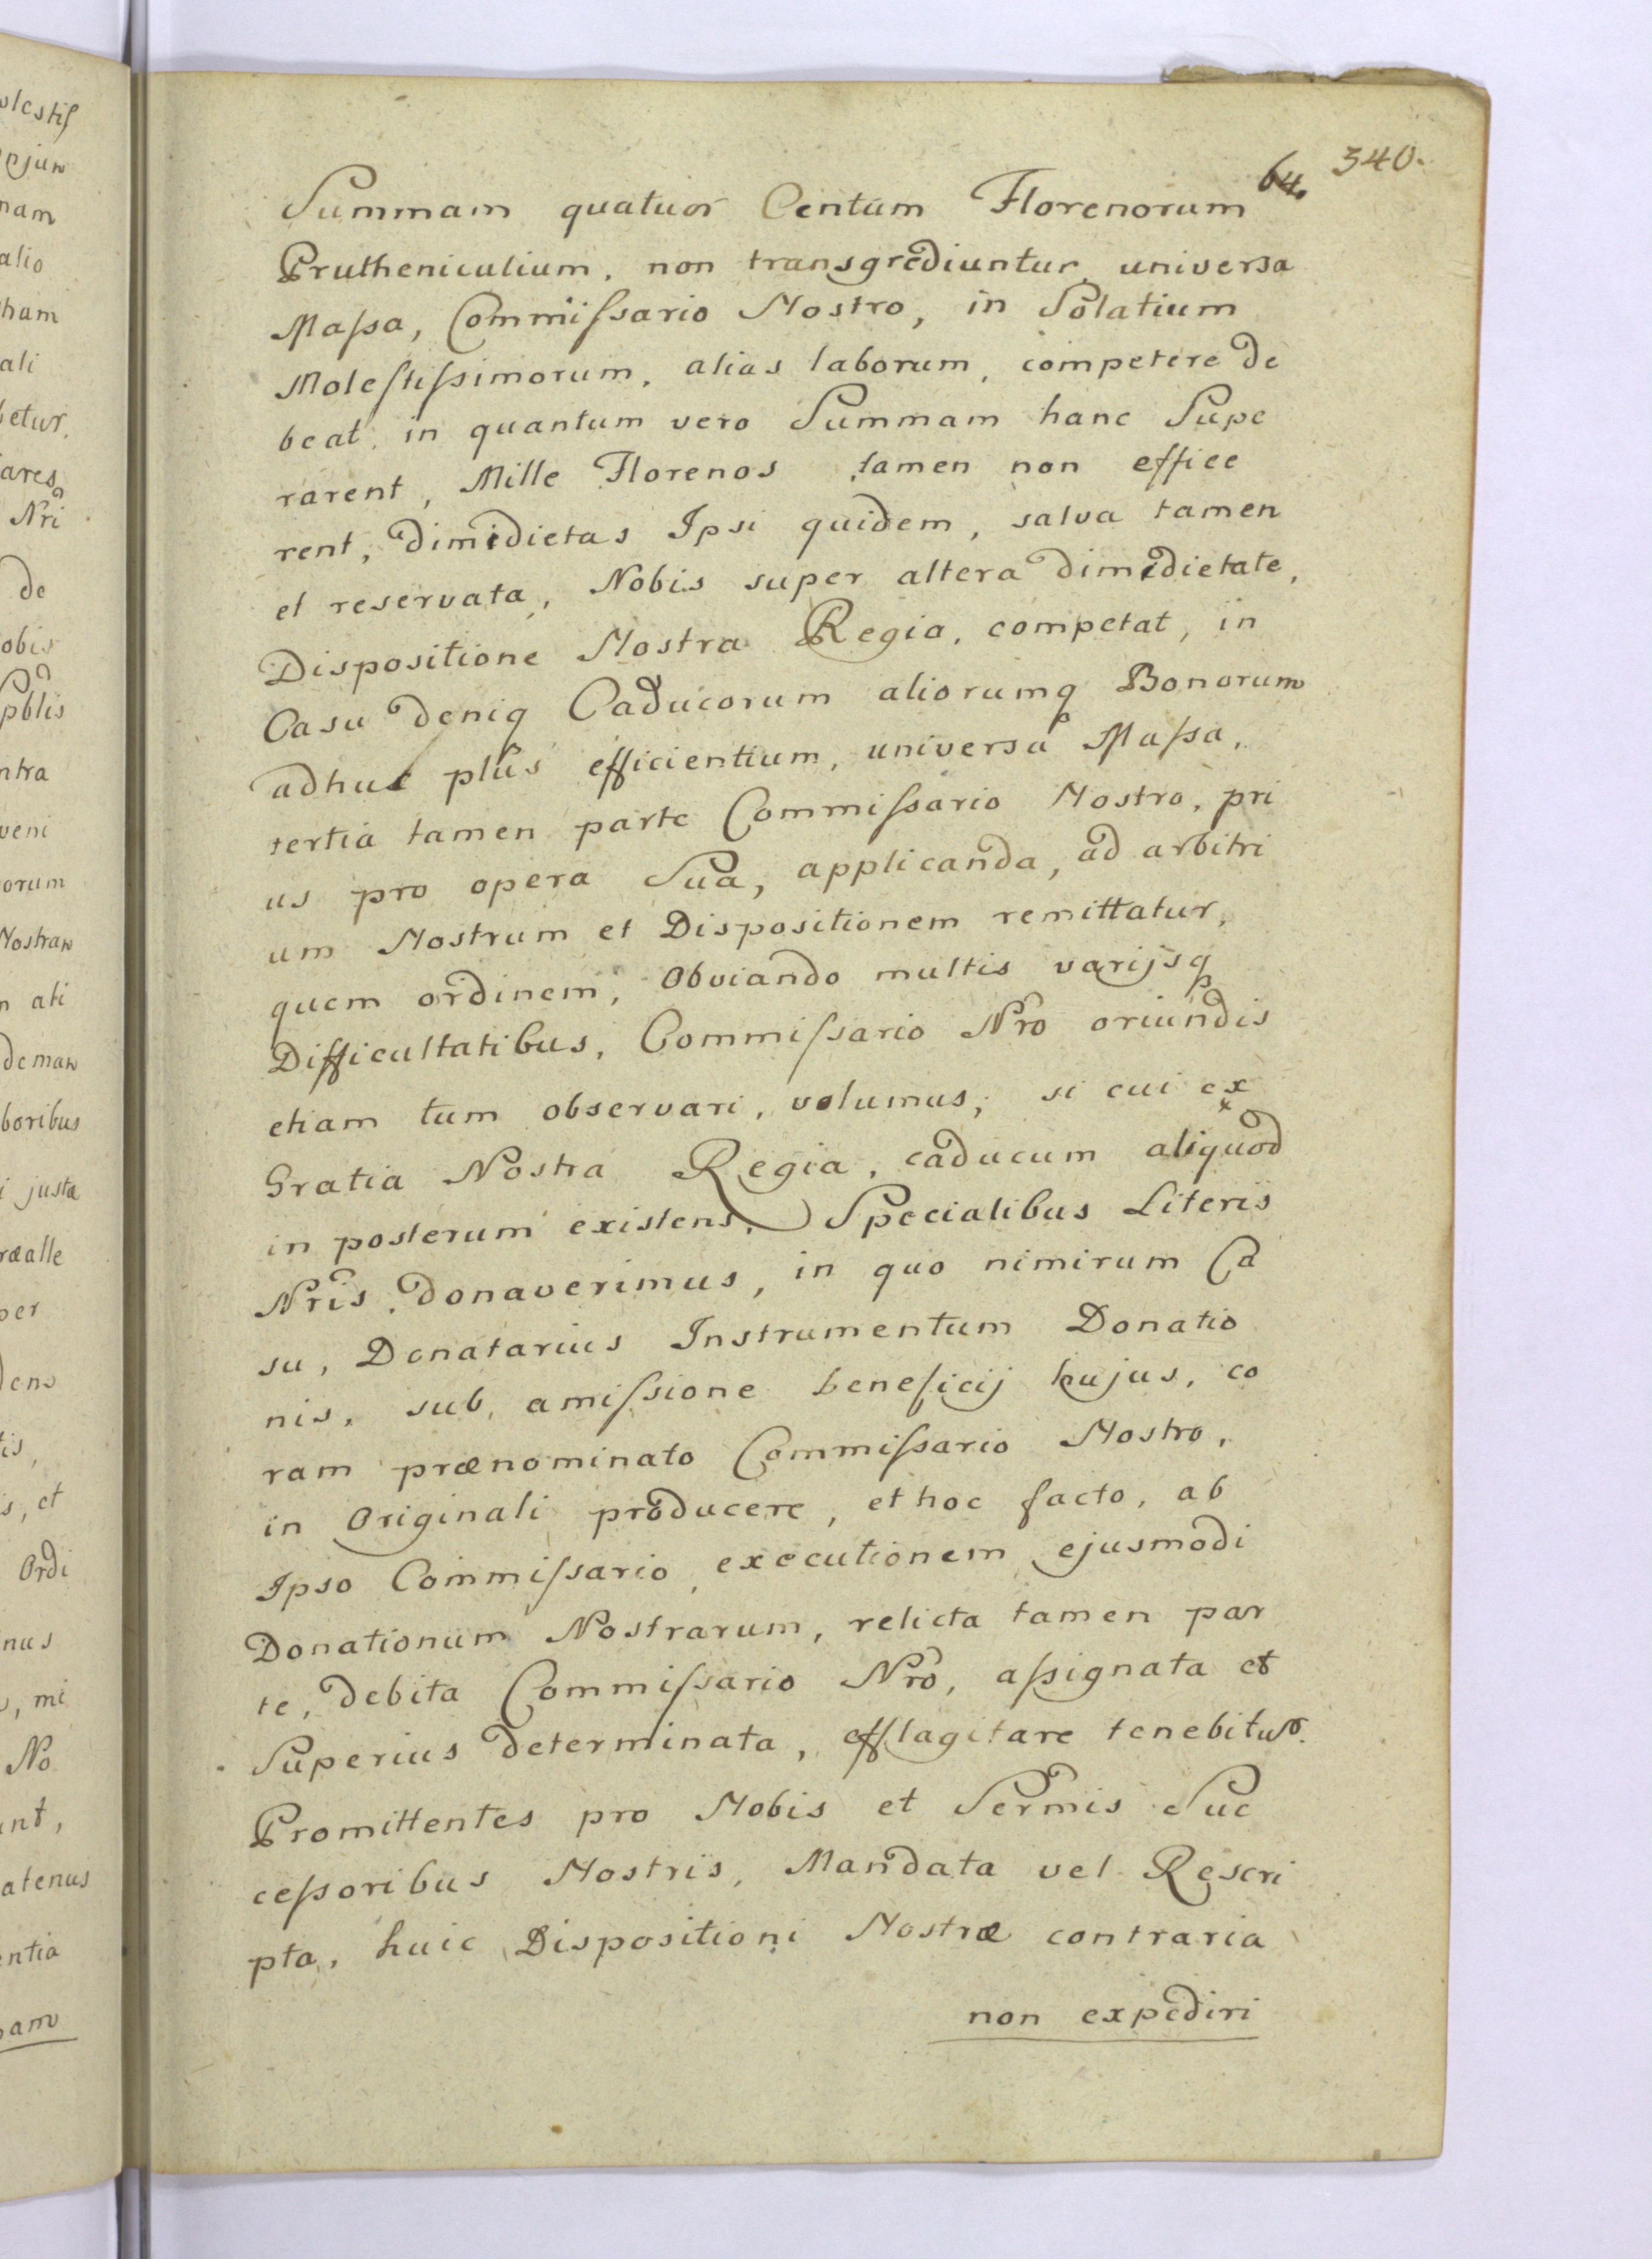 64. 340.
Summam quatuor Centum Florenorum
Prutheniculium, non transgrediuntur, universa
Maſsa, Commiſsario Nostro, in Solatium
Moleſtiſsimorum, alias laborum, competere de
beat, in quantum vero Summam hanc Supe
rarent, Mille Florenos tamen non effice
rent, dimidietas Ipsi quidem, salva tamen
et reservata, Nobis super altera dimidietate,
Dispositione Nostra Regia, competat, in
Casu deniq Caducorum aliorumq Bonorum
adhuc plus efficientium, universa Maſsa,
tertia tamen parte Commiſsario Nostro, pri
us pro opera Sua, applicanda, ad arbitri
um Nostrum et Dispositionem remittatur,
quem ordinem, obviando multis varijsq
Difficultatibus, Commiſsario Nro oriundis
etiam tum observari, volumus, si cui ex
Gratia Nostra Regia, caducum aliquod
in posterum existens, Specialibus Literis
Nris, donaverimus, in quo nimirum Ca
su, Donatarius Instrumentum Donatio
nis, sub, amiſsione beneficij hujus, co
ram prænominato Commiſsario Nostro,
in Originali producere, et hoc facto, ab
Ipso Commiſsario, executionem ejusmodi
Donationum Nostrarum, relicta tamen par
te, debita Commiſsario Nro, aſsignata et
Superius determinata, efflagitare tenebitur.
Promittentes pro Nobis et Sermis Suc
ceſsoribus Nostris, Mandata vel Rescri
pta, huic Dispositioni Nostræ contraria
non expediri